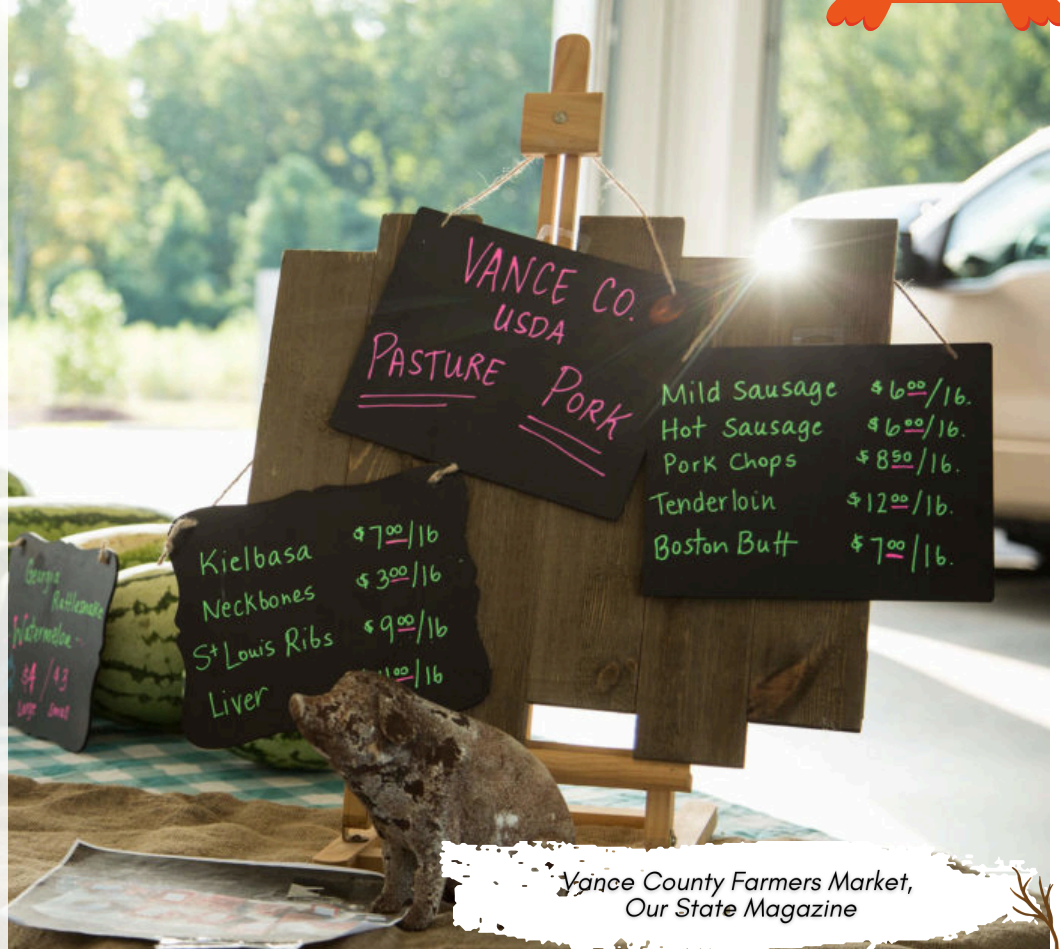 VANCE CO.
USDA
PASTURE PORK
Mild Sausage $6.00/lb.
Hot Sausage $6.00/lb.
Pork Chops $8.50/lb.
Tenderloin $12.00/lb.
Boston Butt $7.00/lb.
Kielbasa $7.00/lb
Neckbones $3.00/lb
St Louis Ribs $9.00/lb
Liver .00/lb
Georgia
Rattlesnake
$4 / $3
Large Small
Vance County Farmers Market,
Our State Magazine